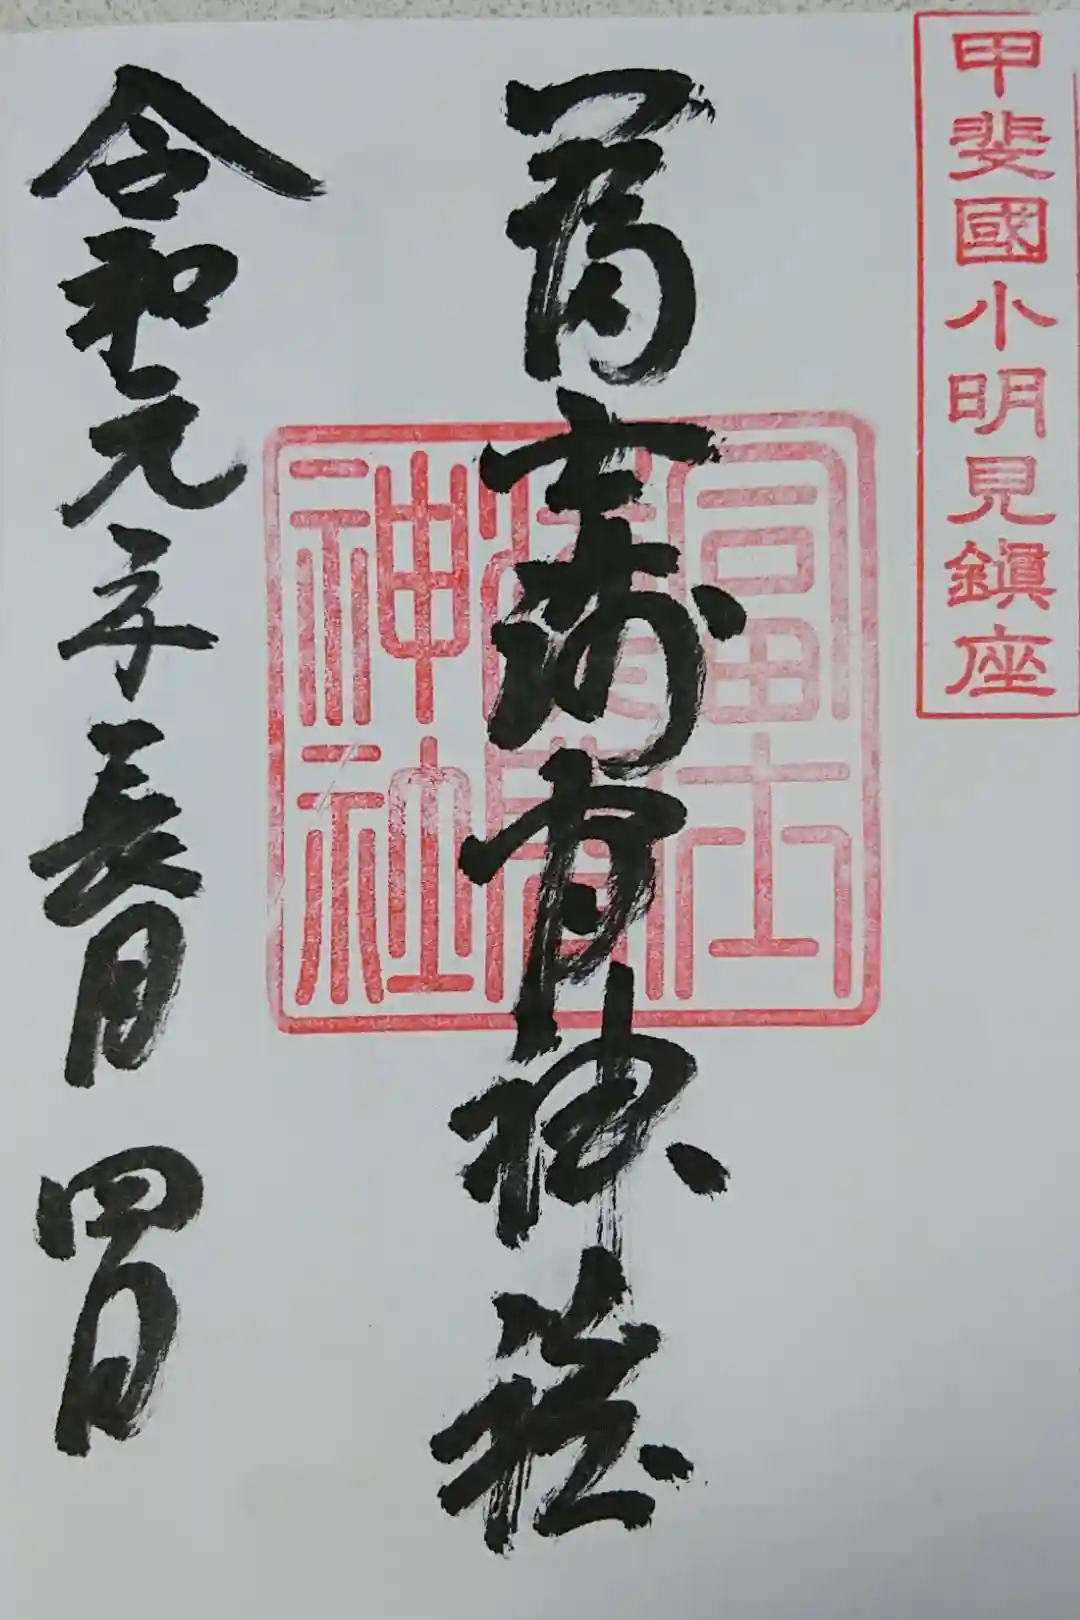 甲斐國小明見鎭座
冨士浅間神社
冨士淺間神社
令和元年長月四日